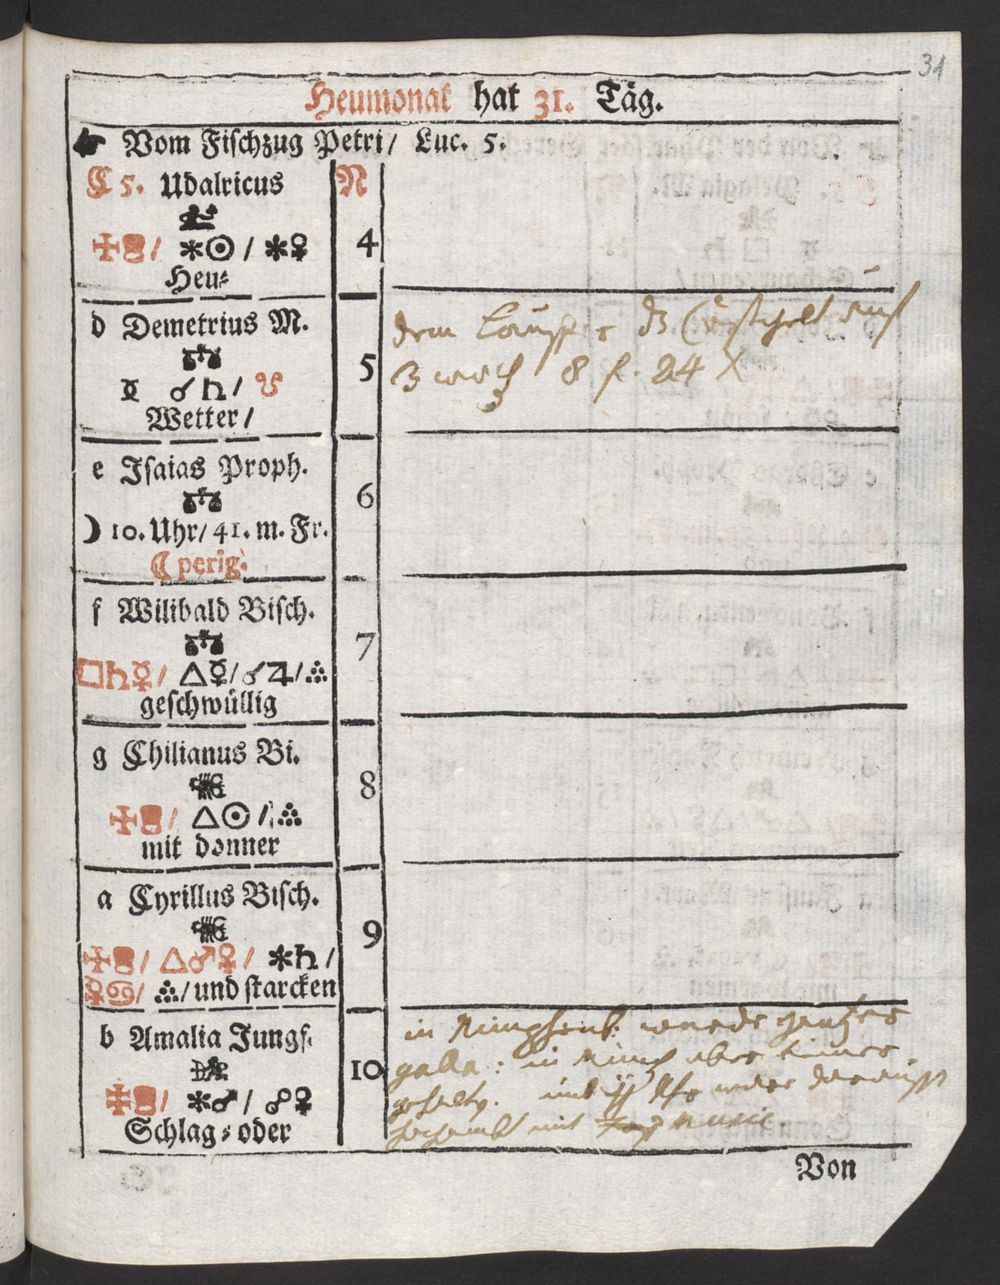 31
Heumonat hat 31. Täg.
☛ Vom Fischzug Petri/ Luc. 5.
C 5. Udalricus N
4
✠ / ✶☉ / ✶♀
Heu⸗
d Demetrius M.
5
☿ ☌ ♄ / ☋
Wetter /
dem
8 f. 24 X
e Isaias Proph.
6
☽ 10. Uhr/ 41. m. Fr.
☾ perig.
f Wilibald Bisch.
7
□♄☿/ △☿/☌♃/⛬
geschwüllig
g Chilianus Bi.
8
✠ / △☉ / ⛬
mit donner
a Cyrillus Bisch.
9
✠ / △♂♀/ ✶♄ /
♀♋/ ⛬/ und starcken
b Amalia Jungf.
10
✠ / ✶♂ / ☍♀
Schlag⸗ oder
in wurde
galla: in
mit music
Von